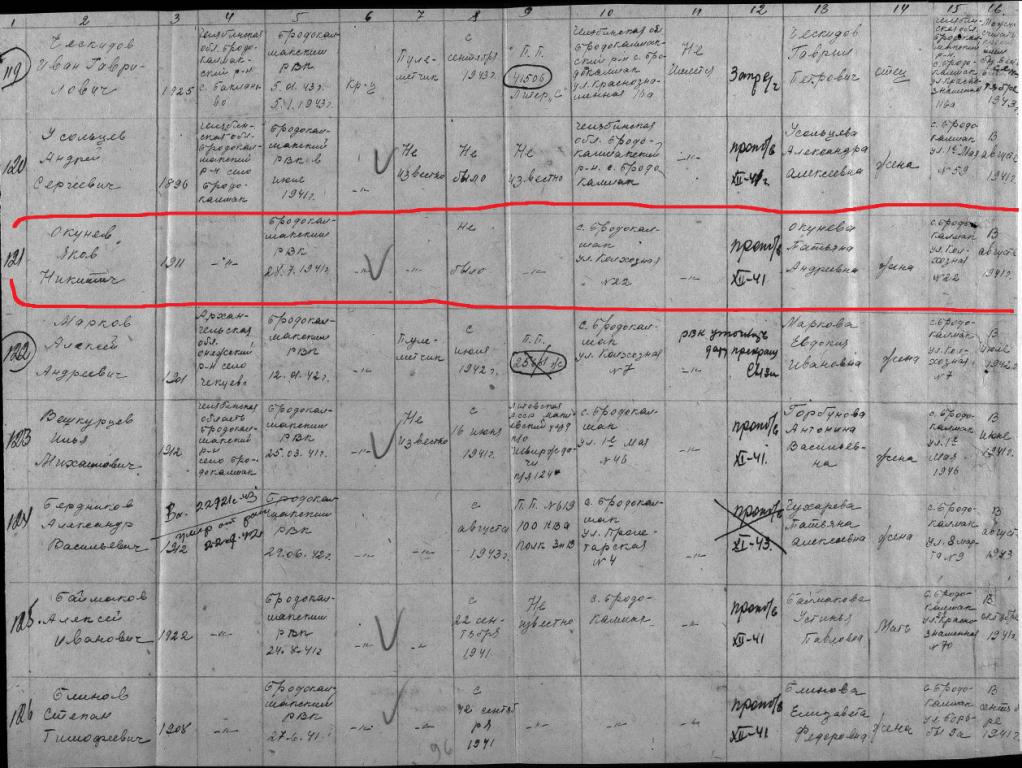 1 2 3 4 5 6 7 8 9 10 11 12 13 14 15 16.
119
Ческидов
Иван Гаври-
лович
1925
Челябинская
обл. Бродо-
калмак-
ский р-н
Бродокал-
макский
РВК
5.01.43г.
5.1.1943г.
Кр-ц
Пуле-
метчик
с
сентября
1943г.
П.П.
41506
Литер "С"
Не
имеется
Ческидов
Гаврил
Петрович
отец
120
Усольцев
Андрей
Сергеевич
1896
Бродокал-
макский
РВК в
июле
1941г.
-"-
Не
известно
Не
было
Не
известно
Челябинская
обл.
Бродокалмакский
р-н. с. Бродо
калмак
-"-
пропб/в
XII-41г
Усольцева
Александра
Алексеевна
жена
с. Бродо
калмак
ул. 1е Мая
№59
В
август
1941г.
121
Окунев
Яков
Никитич
1911
-"-
Бродокал-
макский
РВК
28.7.1941г.
-"-
-"-
Не
было
-"-
с. Бродокал-
мак
ул. Колхозная
№22
-"-
пропб/в
XII-41
Окунева
Татьяна
Андреевна
жена
с. Бродо-
калмак
ул. Кол-
хозная
№22
В
август
1941г.
122
Марков
Алексей
Андреевич
1901
Архан-
гельская
обл.
р-н село
Бродокал-
макский
РВК
12.01.42г.
-"-
Пуле-
метчик
с
июля
1942г.
П.П.
с. Бродокал-
мак
ул. Колхозная
№7
РВК
-"-
Маркова
Евдокия
Ивановна
жена
с. Бродо-
калмак
ул. Кол-
хозная
№7
В
июле
1942г.
123
Вешкурцев
Илья
Михайлович
1912
Челябинская
область
Бродокал-
макский
р-н
село Бро-
докалмак
Бродокал-
макский
РВК
25.03.41г.
-"-
Не
известно
с
16 июня
1941г.
с. Бродокал-
мак
ул. 1е Мая
№46
-"-
пропб/в
XI-41.
Горбунова
Антонина
Васильев-
на
жена
с. Бродо-
калмак
ул. 1е
Мая
№46
В
июне
1941г.
124
Бердников
Александр
Васильевич
1912
Бродокал-
макский
РВК
29.06.42г.
-"-
-"-
с
августа
1943г.
П.П. №619
полк
с. Бродокал-
мак
ул. Проле-
тарская
№4
-"-
пропб/в
XI-43.
Татьяна
Алексеевна
жена
с. Бродо-
калмак
ул. 8 мар-
та №9
В
август
1943
125
Баймаков
Алексей
Иванович
1922
-"-
Бродокал-
макский
РВК
24.8.41г
-"-
-"-
с
22 сен-
тября
1941.
Не
известно
с. Бродо-
калмак
-"-
пропб/в
XII-41
Баймакова
Устинья
Павловна
Мать
с. Бродо-
калмак
ул. Красно
знаменная
№70
В
1941г.
126
Блинов
Степан
Тимофеевич
1908
-"-
Бродокал-
макский
РВК
27.6.41.
-"-
-"-
с
сентяб
ря
1941
-"-
-"-
-"-
пропб/в
XII-41
Блинова
Елизавета
Федоровна
жена
с. Бродо-
калмак
В
сентяб
ре
1941г.
96